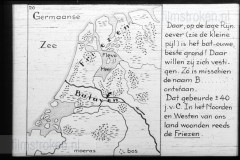 Germaanse
Zee
Friezen
Bataven
moeras
bos
Daar, op de lage Rijn
oever (zie de kleine
pijl) is het bat-ouwe,
beste grond! Daar
willen zij zich vesti-
gen. Zo is misschien
de naam B.
ontstaan.
Dat gebeurde ±40
j. v. C. In het Noorden
en Westen van ons
land woonden reeds
de Friezen.